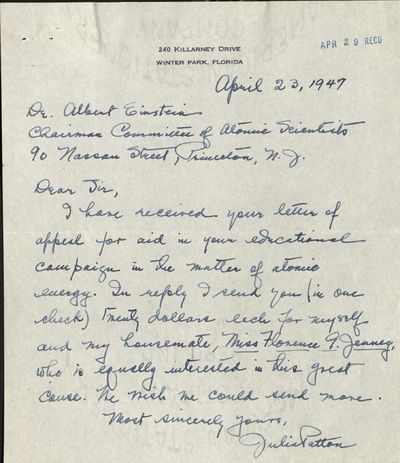 240 KILLARNEY DRIVE
WINTER PARK, FLORIDA
APR 29 RECD
April 23, 1947
Dr. Albert Einstein
Chairman Committee of Atomic Scientists
90 Nassau Street, Princeton, N. J.
Dear Sir,
I have received your letter of
appeal for aid in your educational
campaign in the matter of atomic
energy. In reply I send you (in one
check) Twenty dollars each for myself
and my housemate, Miss Florence G. Jenney,
who is equally interested in this great
cause. We wish we could send more.
Most sincerely yours,
Julia Patton